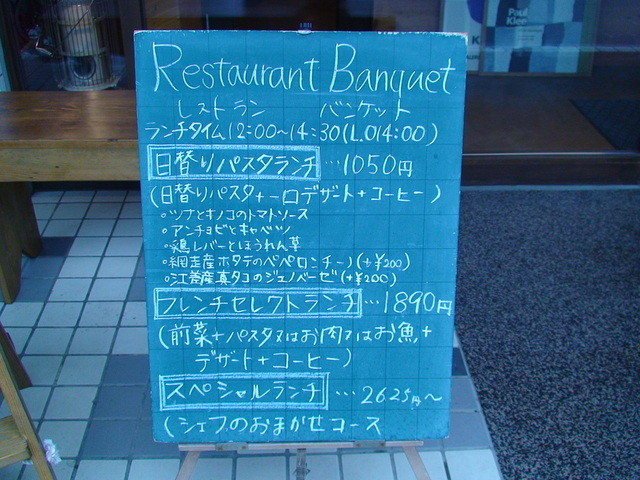 Paul
Klee
Restaurant Banquet
レストラン バンケット
ランチタイム 12:00〜14:30(L.O14:00)
日替りパスタランチ …1050円
(日替りパスタ+一口デザート+コーヒー)
◦ツナとキノコのトマトソース
◦アンチョビとキャベツ
◦鶏レバーとほうれん草
◦網走産ホタテのペペロンチーノ(+¥200)
◦江差産真タコのジェノベーゼ(+¥200)
フレンチセレクトランチ …1890円
(前菜+パスタ又はお肉又はお魚+
デザート+コーヒー)
スペシャルランチ …2625円〜
(シェフのおまかせコース